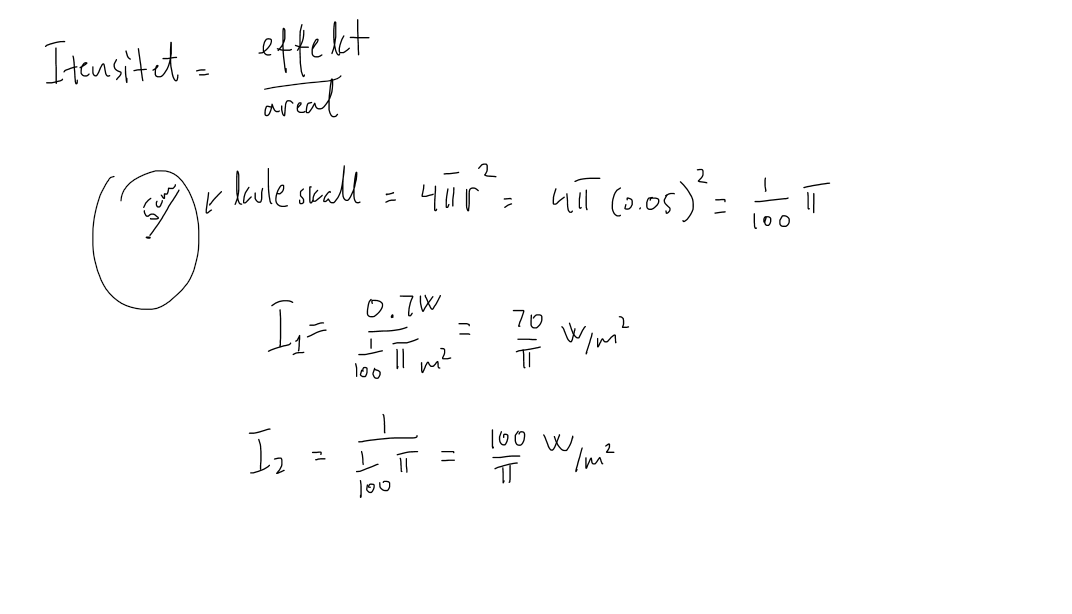 Itensitet = effekt / areal
5cm
kuleskall = 4πr² = 4π(0.05)² = 1/100 π
I₁ = 0.7W / (1/100 π m²) = 70/π W/m²
I₂ = 1 / (1/100 π) = 100/π W/m²